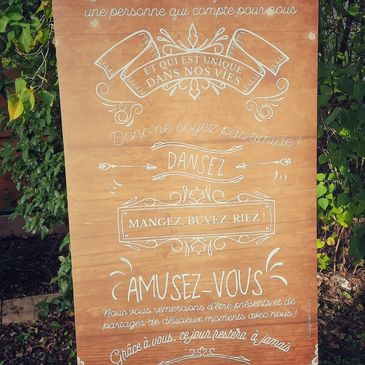 une personne qui compte pour nous
ET QUI EST UNIQUE
DANS NOS VIES
Donc ne soyez pas timide !
DANSEZ
MANGEZ, BUVEZ, RIEZ !
AMUSEZ-VOUS
Nous vous remercions d'être présents et de
partager de délicieux moments avec nous !
Grâce à vous, ce jour restera à jamais